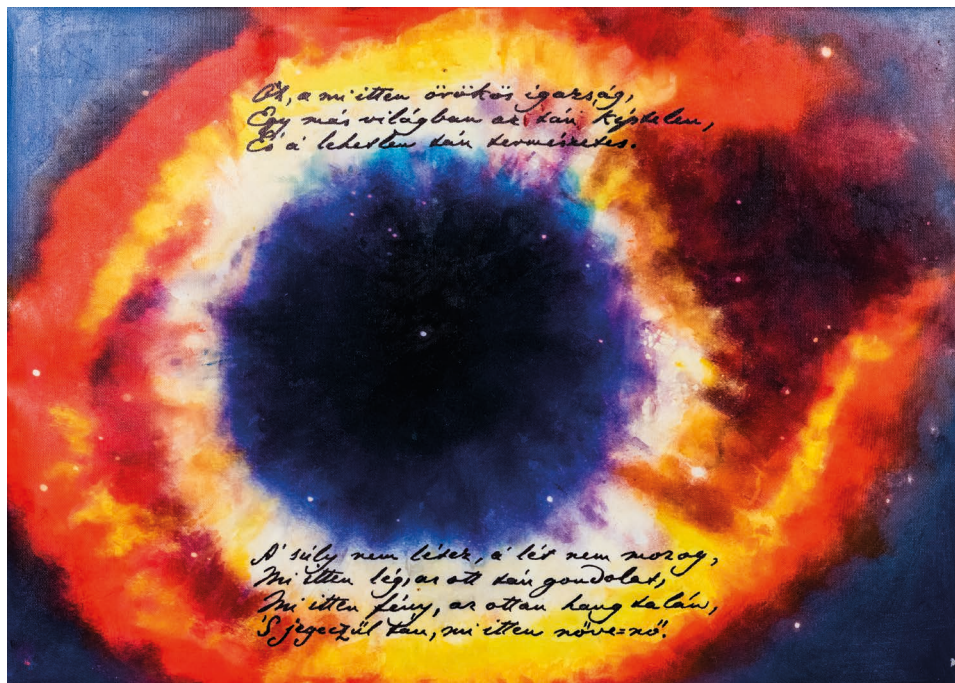 Oh, a mi itten örökös igazság,
Egy más világban az tán képtelen,
És á lehetlen tán természetes.
A' súly nem létez, á lét nem mozog,
Mi itten lég, az ott tán gondolat,
Mi itten fény, az ottan hang talán,
'S jegeczül tán, mi itten növe=nő.